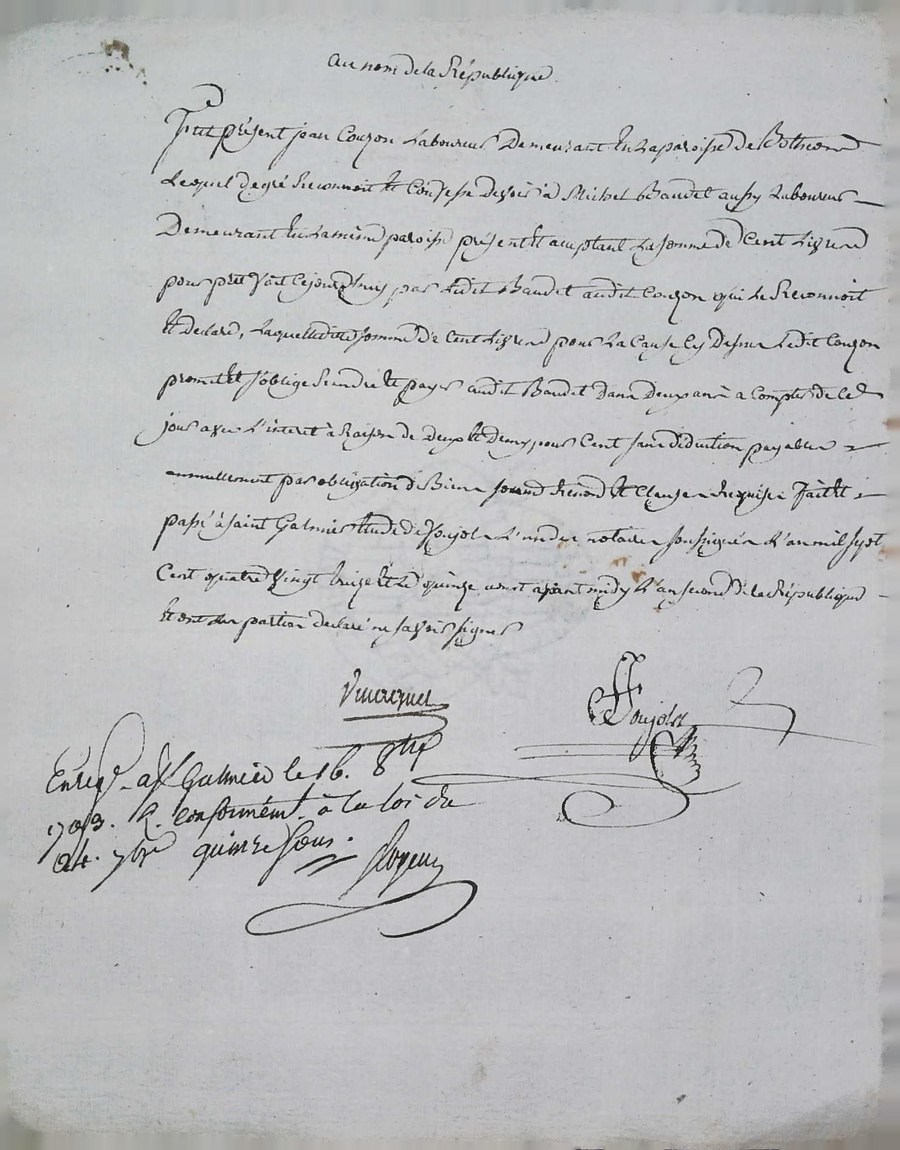 au nom de la République
Fut présent jean Couzon Laboureur Demeurant En La paroisse de
Lequel de gré Reconnoit Et Confesse Devoir à Michel Baudet aussy Laboureur
Demeurant En La même paroisse présent Et acceptant La somme de Cent Livres
pour prêt fait Cejourdhuy par Ledit Baudet audit Couzon qui Le Reconnoit
Et declare, Laquelle ditte somme de Cent Livres pour La Cause Cy Dessus Ledit Couzon
promet Et s'oblige Rendre Et payer audit Baudet Dans Deux ans à Compter de Ce
jour avec L'interet à Raison de Deux Et Demy pour Cent sans déduction payable
annuellement par obligation de Biens Renond Et Clauses Requises Fait Et
passé à Saint Galmier Etude de Soujol L'un des notaires soussignés L'an mil sept
Cent quatre vingt treize Et Le quinze avant midy L'an second de la République
Et ont Les parties declaré ne savoir signer
Soujol
Enreg. a St Galmier le 16. 8bre
1793. R. conformémt. à la loi du
7bre quinze sous.